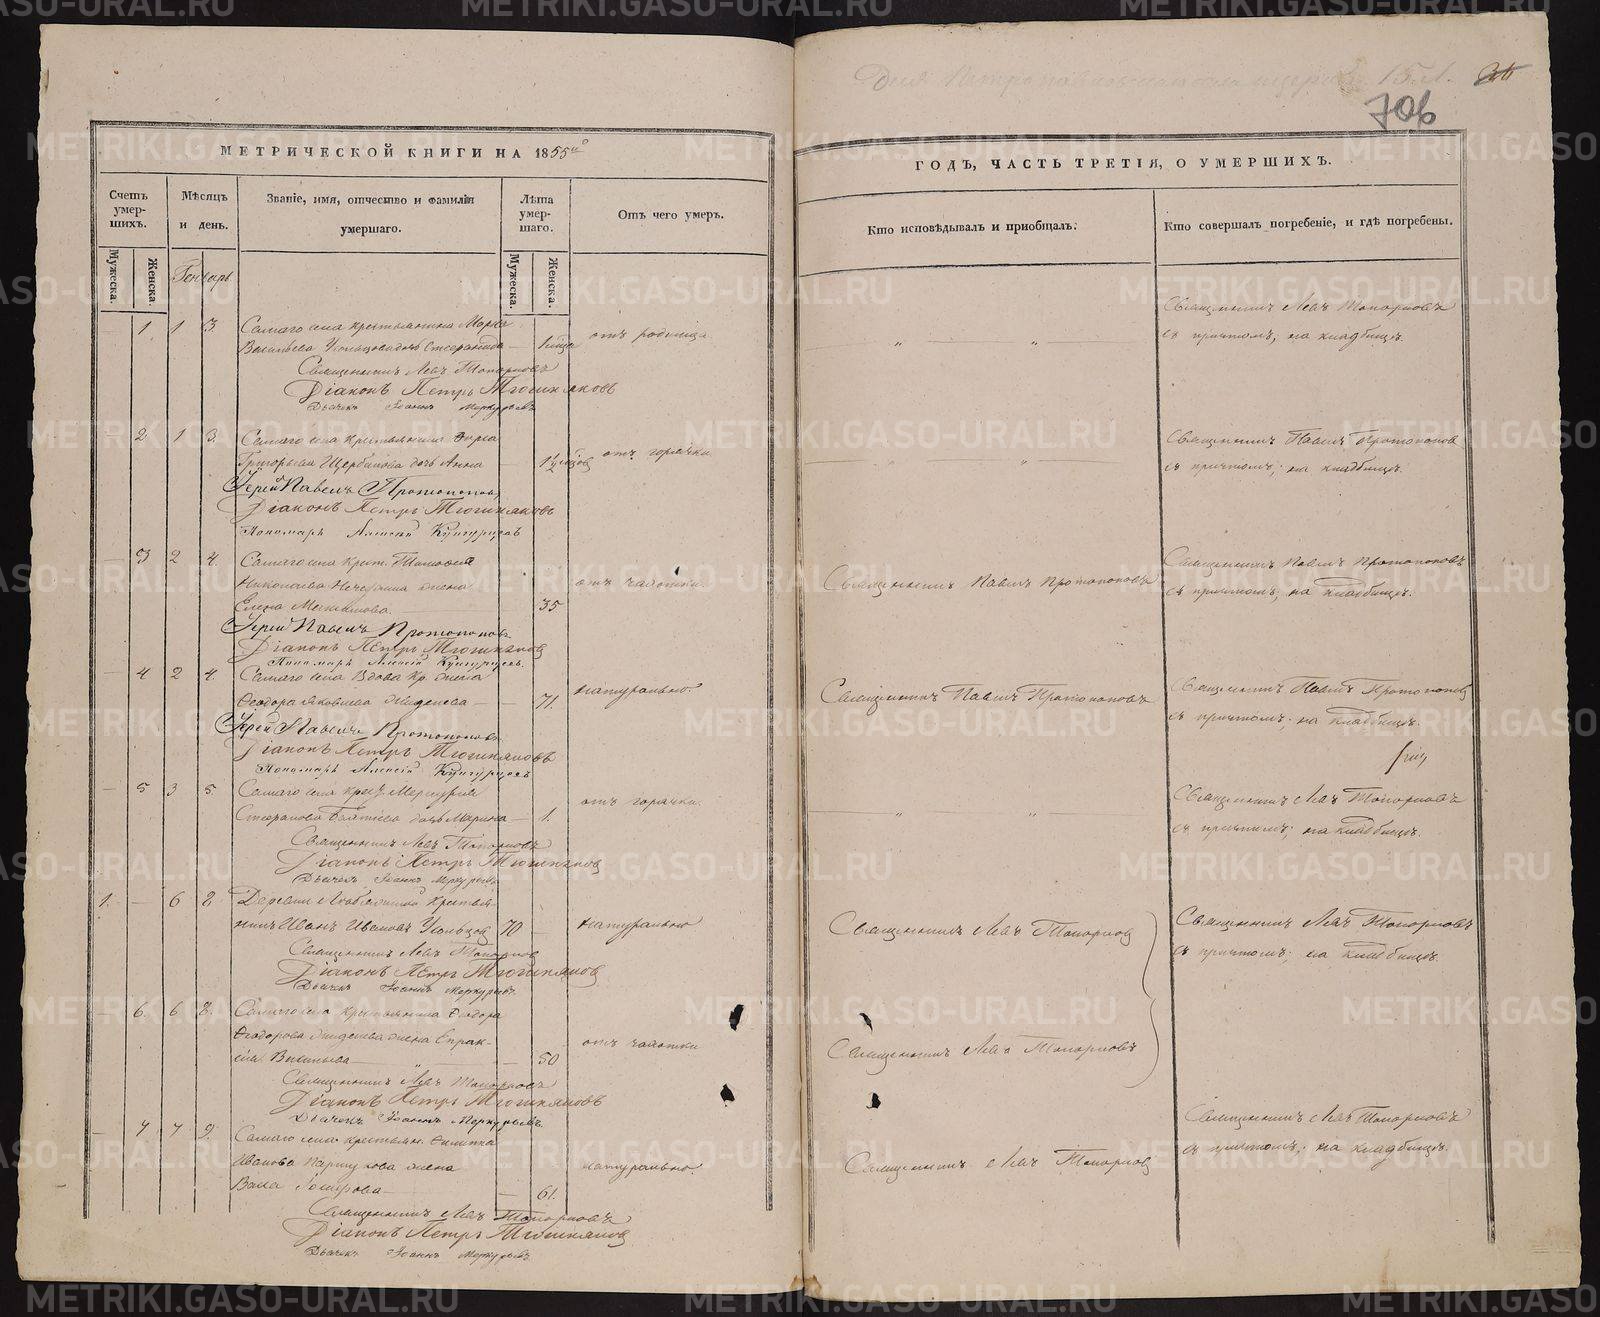 Для Петропавловской церкви 15 л.
706
МЕТРИЧЕСКОЙ КНИГИ НА 1855й
ГОДЪ, ЧАСТЬ ТРЕТІЯ, О УМЕРШИХЪ.
Счетъ умер-
шихъ.
Мужеска.
Женска.
Мѣсяцъ
и день.
Званіе, имя, отчество и фамилія
умершаго.
Лѣта
умер-
шаго.
Мужеска.
Женска.
Отъ чего умеръ.
Кто исповѣдывалъ и пріобщалъ.
Кто совершалъ погребеніе, и гдѣ погребены.
Генварь
1 1 3. Самаго села крестьянина Марка
Васильева дочь — 1 отъ родимца
Священникъ Левъ Топорковъ
съ причтомъ, на кладбищѣ.
Священникъ Левъ Топорковъ
Діаконъ Петръ Тюшняковъ
Дьячекъ Іоаннъ Меркурьевъ
2 1 3. Самаго села крестьянина
Григорьева Щербакова дочь Анна — 1½ отъ горячки
Священникъ Павелъ Протопопов
съ причтомъ; на кладбищѣ.
Іерей Павелъ Протопопов
Діаконъ Петръ Тюшняковъ
Пономарь Алексій Кунгурцевъ
3 2 4. Самаго села крест. Тимофея
Николаева жена
Елена — 35 отъ чахотки.
Священникъ Павелъ Протопоповъ
Священникъ Павелъ Протопоповъ
съ причтомъ; на кладбищѣ.
Іерей Павелъ Протопопов
Діаконъ Петръ Тюшняков
Пономарь Алексій Кунгурцевъ.
4 2 4. Самаго села вдова кр. жена
Ѳеодора Яковлева — 71. натурально.
Священникъ Павелъ Протопоповъ
Священникъ Павелъ Протопопов
съ причтомъ; на кладбищѣ.
Іерей Павелъ Протопопов
Діаконъ Петръ Тюшняковъ
Пономарь Алексій Кунгурцевъ
5 3 5. Самаго села крест. Меркурія
Стефанова дочь Марина — 1. отъ горячки.
Священникъ Левъ Топорковъ
съ причтомъ; на кладбищѣ.
Священникъ Левъ Топорковъ
Діаконъ Петръ Тюшняков
Дьячекъ Іоаннъ Меркурьевъ
1. — 6 8 Деревни крестья-
нинъ Иванъ Ивановъ Усольцов 70 — натурально
Священникъ Левъ Топорков
Священникъ Левъ Топорковъ
съ причтомъ; на кладбищѣ.
Священникъ Левъ Топорков
Діаконъ Петръ Тюшняков
Дьячекъ Іоаннъ Меркурьевъ.
6. 6 8. Самаго села крестьянина Ѳеодора
Ѳеодорова жена Епрак-
сія Васильева — 50 отъ чахотки
Священникъ Левъ Топорковъ
Священникъ Левъ Топорковъ
Діаконъ Петръ Тюшняковъ
Дьячекъ Іоаннъ Меркурьевъ.
7 7 9. Самаго села крестьян. Филиппа
Иванова жена
— 61. натурально.
Священникъ Левъ Топорков
Священникъ Левъ Топорковъ
съ причтомъ; на кладбищѣ.
Священникъ Левъ Топорковъ
Діаконъ Петръ Тюшняков
Дьячекъ Іоаннъ Меркурьевъ
METRIKI.GASO-URAL.RU